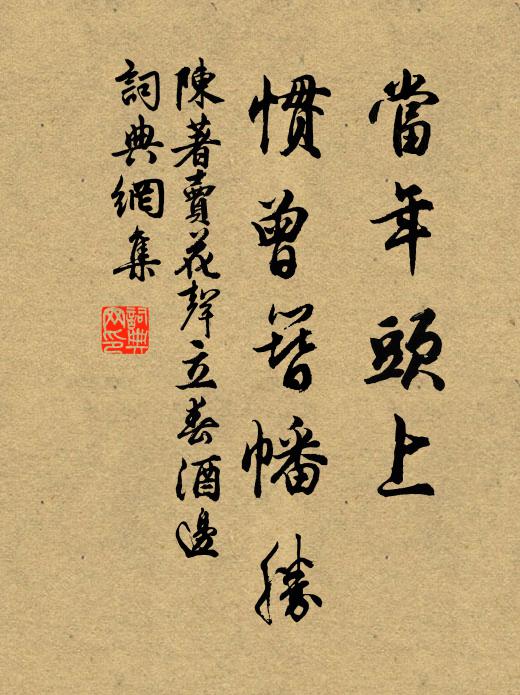 當年頭上
慣曾簪幡勝
陳著賣花聲立春酒邊
詞典網集
詞典
网印